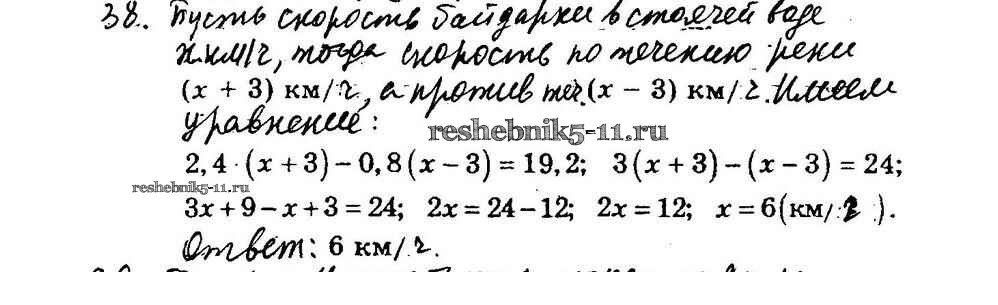 38. Пусть скорость байдарки в стоячей воде
х км/ч, тогда скорость по течению реки
(x + 3) км/ч, а против теч. (x − 3) км/ч. Имеем
уравнение:
reshebnik5-11.ru
2,4 · (x + 3) − 0,8 (x − 3) = 19,2; 3(x + 3) − (x − 3) = 24;
reshebnik5-11.ru
3x + 9 − x + 3 = 24; 2x = 24 − 12; 2x = 12; x = 6 (км/ч).
Ответ: 6 км/ч.